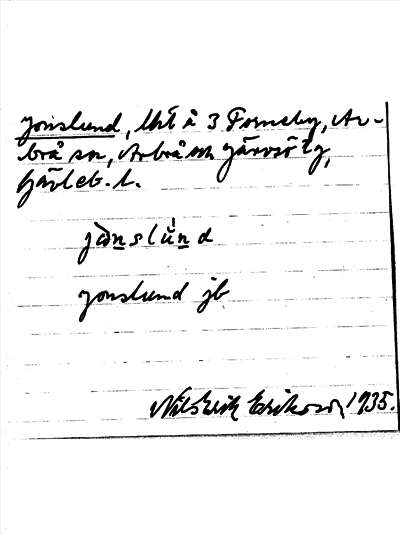 Jonslund, lht å 3 Forneby, Ar-
brå sn, Arbrå och Järvsö tg,
Gävleb. l.
jònslùnd
Jonslund jb
Nils Erik Eriksson, 1935.